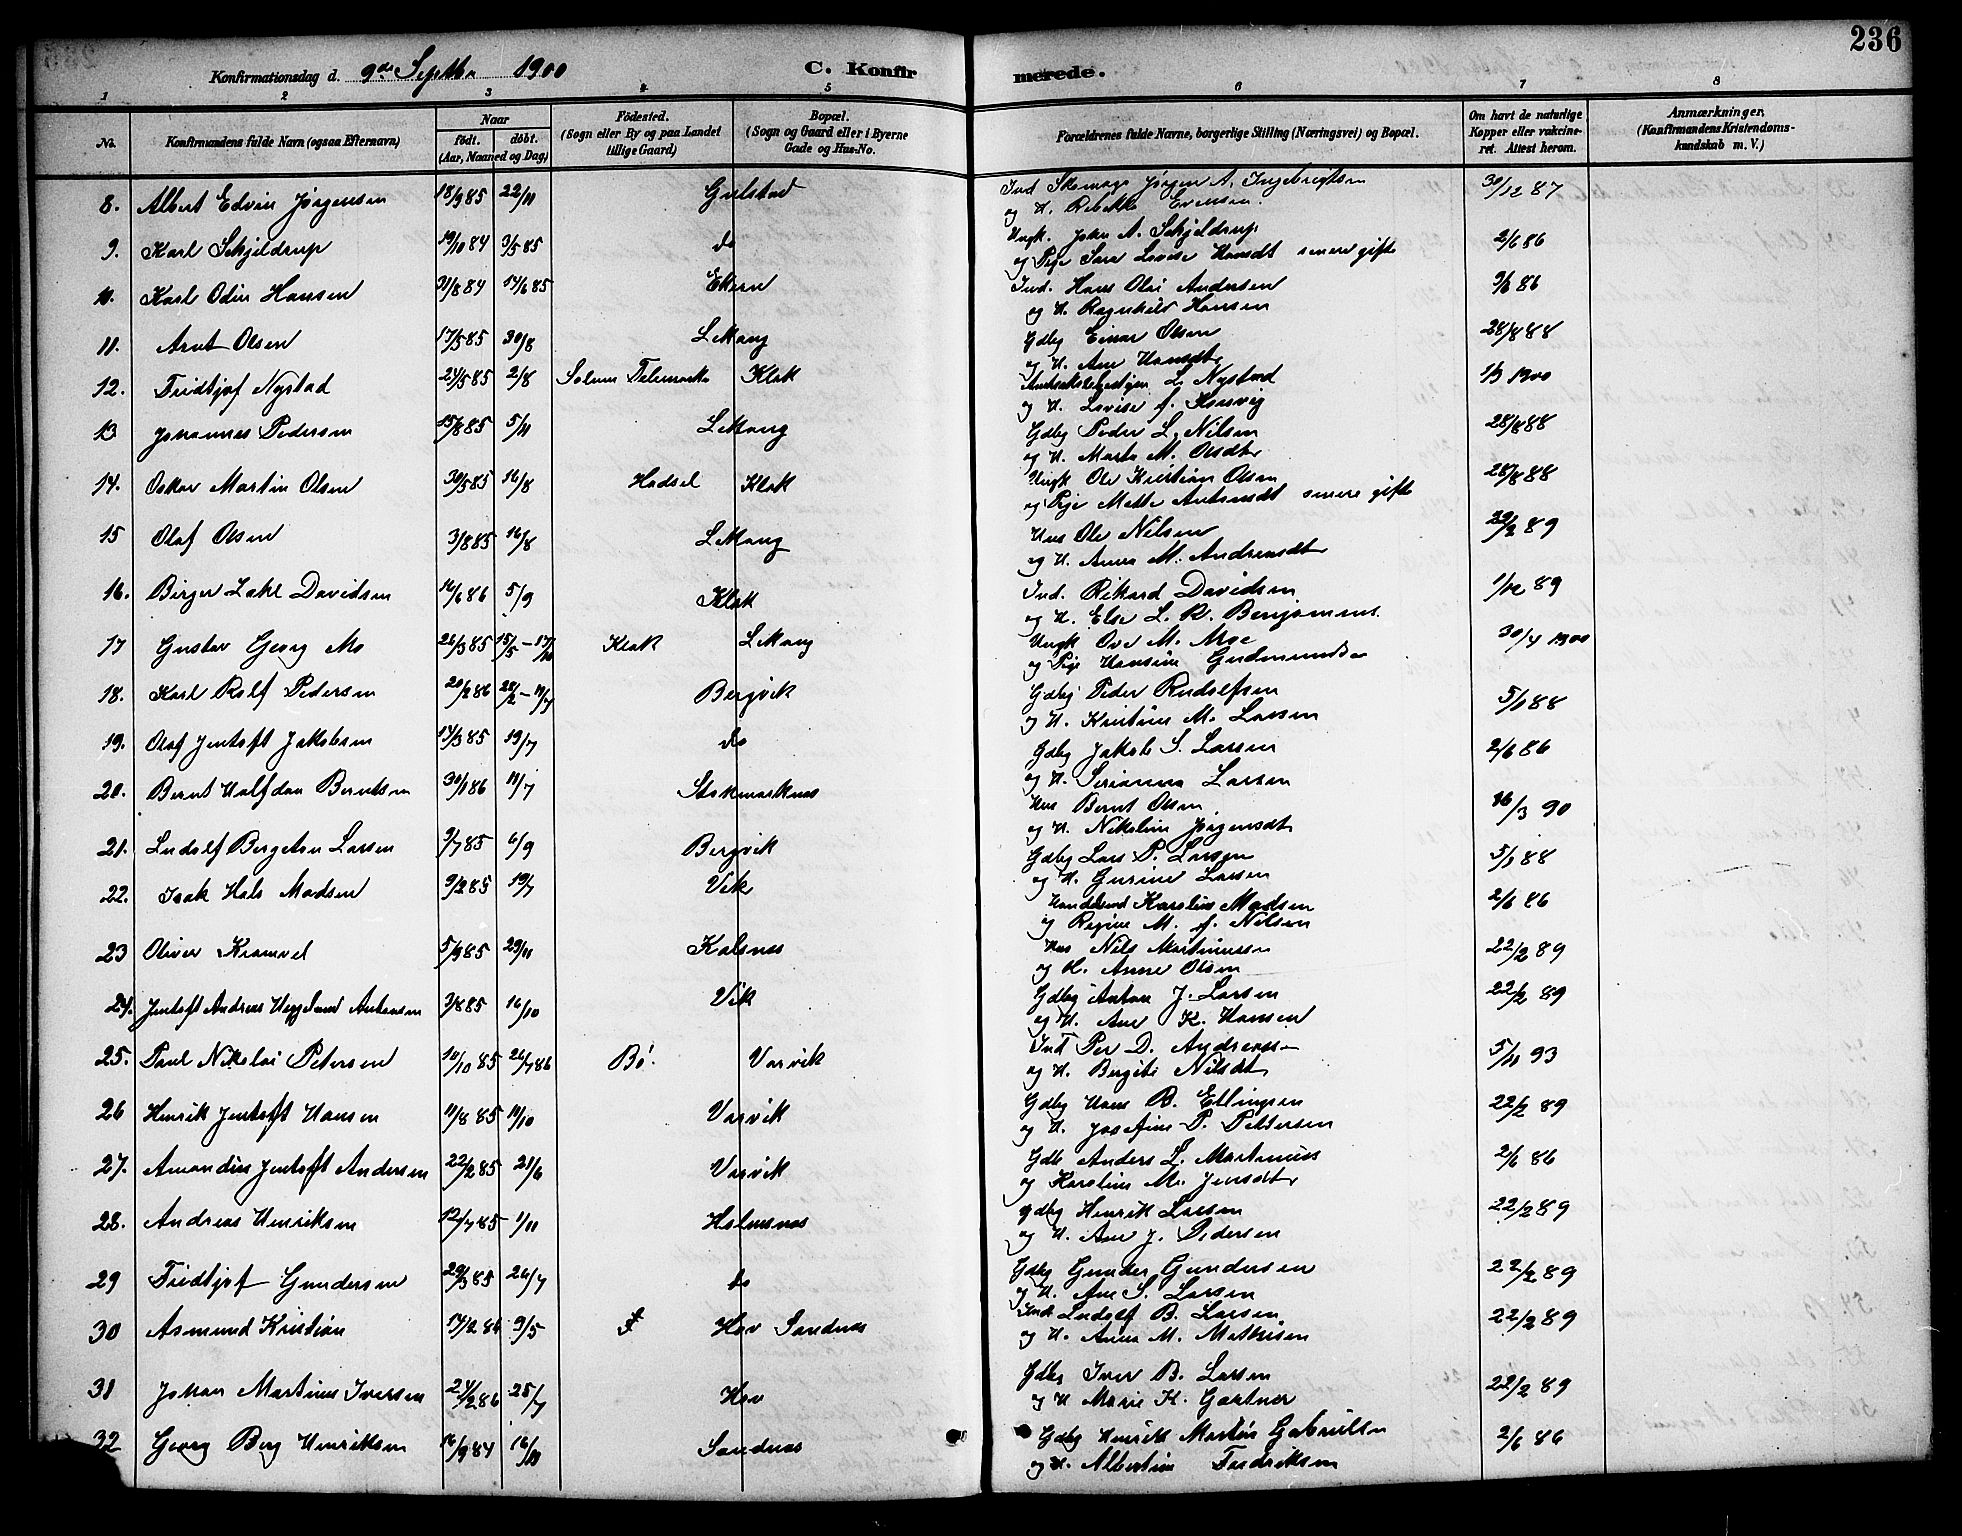 236
Konfirmationsdag d. 9de Septbr 1900 C. Konfirmerede.
1 2 3 4 5 6 7 8
No. Konfirmandens fulde Navn (ogsaa Efternavn) Naar født. døbt. (Aar, Maaned og Dag) Födested. (Sogn eller By og paa Landet tillige Gaard) Bopæl. (Sogn og Gaard eller i Byerne Gade og Hus-No. Forældrenes fulde Navne, borgerlige Stilling (Næringsvei) og Bopæl. Om havt de naturlige Kopper eller vakcineret. Attest herom. Anmærkninger, (Konfirmandens Kristendomskundskab m. V.)
8. Albert Edvin Jørgensen 18/9 85 22/11 Gulstad Ind Skomager Jørgen A. Ingebrigtsen 30/12 87
og H. Rebekka Evensen
9. Karl Schjeldrup 19/10 84 3/5 85 do Ungk. Johan A. Schjeldrup 2/6 86
og Pige Sara Lovise Hansdt senere gifte
10. Karl Odin Hansen 31/8 84 14/6 85 Ekern Ind. Hans Olai Andersen 86
og H. Ragnhild Hansen
11. Arnt Olsen 17/5 85 30/8 Lekang Gdbg Einar Olsen 28/8 88
og H. Ane Hansdt
12. Fridtjof Nystad 24/5 85 2/8 Solum Telemarken Klok L. Nystad 1900
og H. Lovise f. Hansvig
13 Johannes Pedersen 15/8 85 5/11 Lekang Gdbg Peder L. Nilsen 28/8 88
og H. Marta M. Olsdt
14. Oskar Martin Olsen 30/5 85 16/8 Hadsel Klok Ungk Ole Kristian Olsen 28/8 88
og Pige Mette Antonsdt senere gifte
15 Olaf Olsen 3/8 85 16/8 Lekang Hus Ole Nilsen 22/2 89
og H. Anna M. Andreasdt
16. Birger Lake Davidsen 16/6 86 5/9 Klok Ind. Rikard Davidsen 1/12 89
og H. Else L. K. Benjamins.
17 Gustav Georg Mo 26/3 85 15/5 - 17/10 Klok Lekang Ungk Ove M. Moe 30/4 1900
og Pige Hansine Gudmunds
18. Karl Rolf Pedersen 20/2 86 28/2 - 11/7 Bergvik Gdbg Peder Rudolfsen 5/1 88
og H. Kristine M. Larsen
19. Olaf Jentoft Jakobsen 14/3 85 19/7 do Gdbg Jakob S. Larsen 2/6 86
og H. Serianna Larsen
20. Bernt Halfdan Berntsen 30/1 86 11/7 Stokmarknes Hus Bernt Olsen 16/3 90
og H. Nikoline Jørgensdt
21. Ludolf Bergeton Larsen 9/7 85 6/9 Bergvik Gdbg Lars P. Larsen 5/1 88
og H. Gurine Larsen
22. Isak Hals Madsen 9/2 85 19/7 Vik Handelsmd Karelius Madsen 2/6 86
og Regine M. f. Nilsen
23 Oliver Kramvel 5/9 85 29/11 Kalsnes Hus Nils Martinussen 22/2 89
og H. Anne Olsen
24. Jentoft Andreas Heggelund Antonsen 3/8 85 16/10 Vik Gdbg Anton J. Larsen 22/2 89
og H. Ane K. Hansen
25. Paul Nikolai Petersen 10/10 85 26/7 86 Bø. Varvik Ind Per D. Andreass 5/11 93
og H. Bergite Nilsdt
26 Henrik Jentoft Hansen 11/8 85 11/10 Varvik Gdbg Hans B. Ellingsen 22/2 89
og H. Josefine P. Pettersen
27. Amandus Jentoft Andersen 22/2 85 21/6 Varvik Gdb Anders L. Martinuss 2/6 86
og Karoline M. Jensdt
28. Andreas Henriksen 12/7 85 1/11 Holmsnes gdbg Henrik Larsen 22/2 89
og H. Ane J. Pedersen
29 Fridtjof Gundersen 29/3 85 26/7 do Gdbg Gunder Gundersen 22/2 89
og H. Ane S. Larsen
30 Asmund Kristian 14/2 86 9/5 Hov Sandnes Ind Ludolf B. Larsen 22/2 89
og H. Anna M. Mathisen
31 Johan Martinus Iversen 24/2 86 25/7 Hov Gdbg Iver B. Larsen 22/2 89
og H Marie K. Gartner
32 Georg Berg Henriksen 16/9 84 16/11 Sandnes Gdbg Henrik Martin Gabrielsen 2/6 86
og H. Albertine Fredriksen